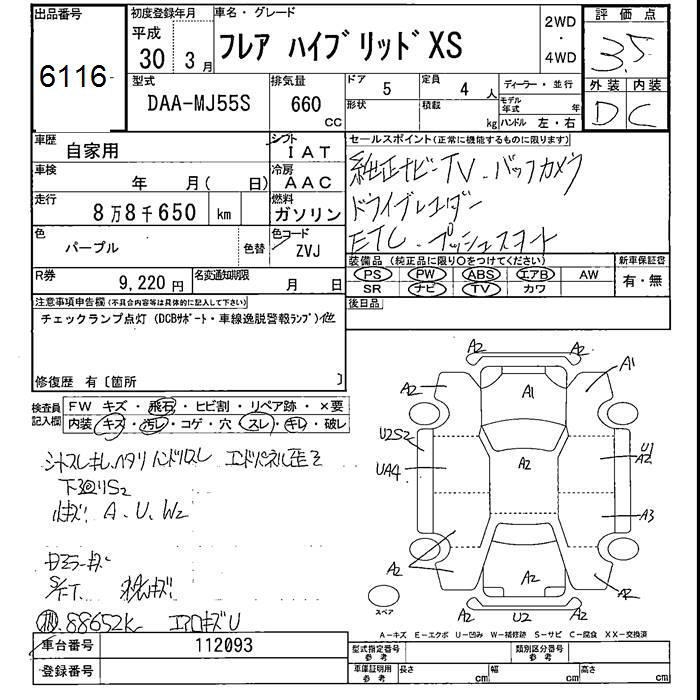 出品番号 初度登録年月 車名・グレード 2WD 評価点
6116 平成 30 3月 フレア ハイブリッドXS ・ 4WD 3.5
型式 排気量 ドア 5 定員 4人 ディーラー・並行 外装 内装
DAA-MJ55S 660 CC 形状 積載 kg モデル年式 年 ハンドル 左・右 D C
車歴 自家用 シフト IAT セールスポイント(正常に機能するものに限ります)
車検 年 月( 日) 冷房 AAC 純正ナビ-TV.バックカメラ
走行 8万8千650 km 燃料 ガソリン ドライブレコーダー
色 パープル 色替 色コード ZVJ ETC.プッシュスタート
装備品(純正品に限り○をつけてください) 新車保証書
R券 9,220円 名変通知期限 月 日 PS PW ABS エアB AW 有・無
SR ナビ TV カワ
注意事項申告欄(不具合内容等は具体的に記入して下さい) 後日品
チェックランプ点灯(DCBサポート・車線逸脱警報ランプ)他
修復歴 有〔箇所 〕
検査員記入欄 FW キズ・飛石・ヒビ割・リペア跡・×要
内装 キズ・汚レ・コゲ・穴・スレ・キレ・破レ
シートスレ キレ ハンドルスレ
下廻りS2
A.U.W2
キズ
88652K エアロキズU
A2 A2
A2 A1 A1
U2S2 U1
A2
UA4 A2 A3
A2 A2 A2
スペア A2 U2 A2
A-キズ E-エクボ U-凹み W-補修跡 S-サビ C-腐食 XX-交換済
車台番号 112093 型式指定番号 参考 類別区分番号 参考
登録番号 車庫証明用 参考 長さ cm 幅 cm 高さ cm